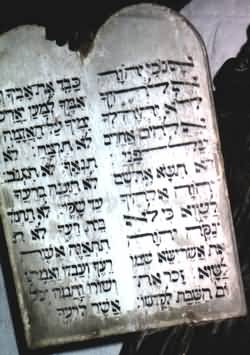 אנכי יהוה
לא יהיה לך
אלהים אחרים
על פני
לא תשא את שם
יהוה אלהיך
לשוא כי לא
ינקה יהוה
את אשר ישא שמו
לשוא זכור את
יום השבת לקדשו
כבד את אביך ואת
אמך למען
על האדמה
לא תרצח לא
תנאף לא תגנוב
לא תענה ברעך
עד שקר לא
רעך לא
תחמד אשת
רעך ועבדו ואמתו
ושורו וחמרו וכל
אשר לרעך